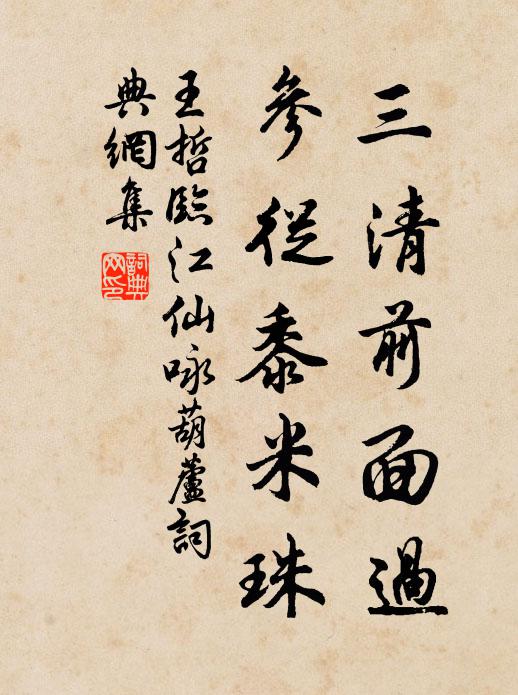 三清前面過
參從黍米珠
王哲臨江仙咏葫蘆詞
典網集
詞典網印